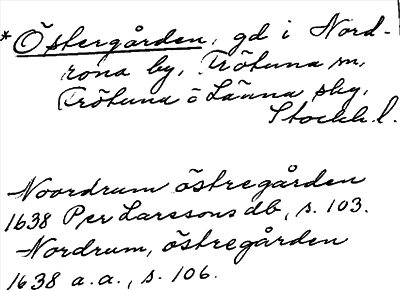 * Östergården, gd i Nord-
rona by, Frötuna sn,
Frötuna o Länna skg,
Stockh. l.
Noordrum östregården
1638 Per Larssons db, s. 103.
Nordrum, östregården
1638 a. a., s. 106.